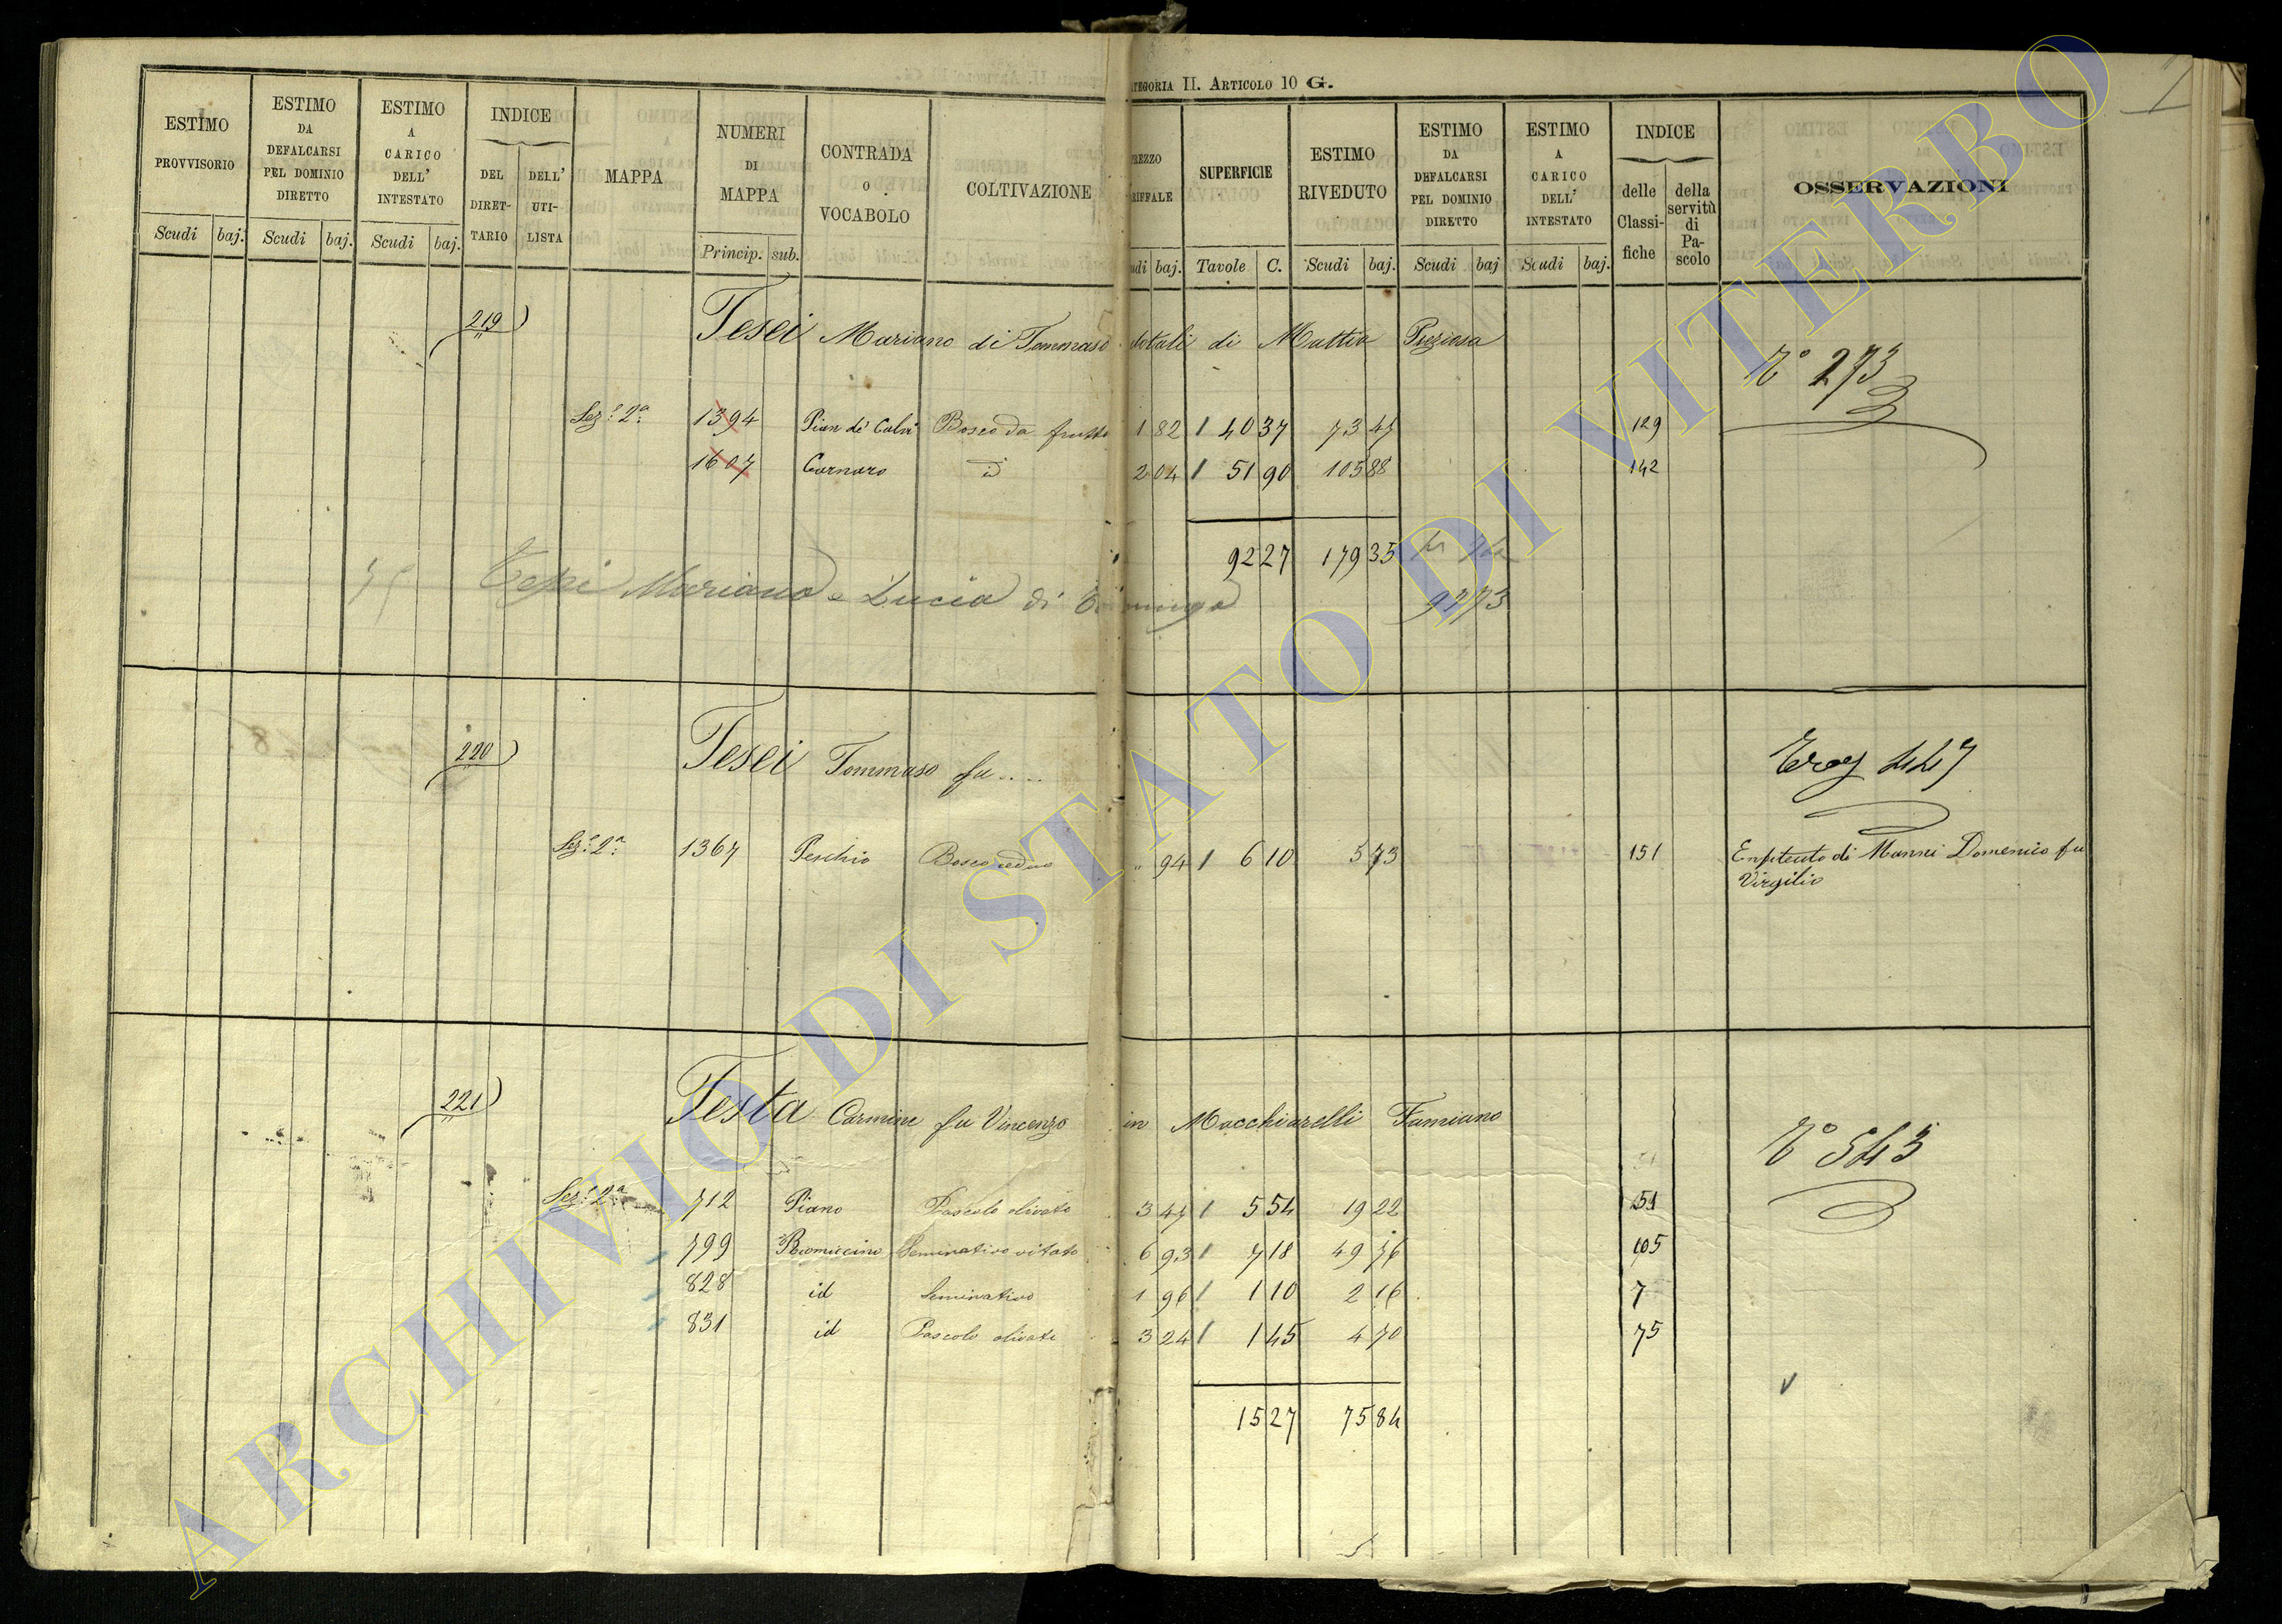 CATEGORIA II. ARTICOLO 10 G.
ESTIMO PROVVISORIO Scudi baj.
ESTIMO DA DEFALCARSI PEL DOMINIO DIRETTO Scudi baj.
ESTIMO A CARICO DELL' INTESTATO Scudi baj.
INDICE DEL DIRET-TARIO DELL' UTI-LISTA
MAPPA
NUMERI DI MAPPA Princip. sub.
CONTRADA O VOCABOLO
COLTIVAZIONE
REZZO RIFFALE udi baj.
SUPERFICIE Tavole C.
ESTIMO RIVEDUTO Scudi baj.
ESTIMO DA DEFALCARSI PEL DOMINIO DIRETTO Scudi baj
ESTIMO A CARICO DELL' INTESTATO Scudi baj.
INDICE delle Classi-fiche della servitù di Pa-scolo
OSSERVAZIONI
219 Tesei Mariano di Tommaso dotali di Mattia Preziosa
N° 273
Sez.e 2a 1394 Pian de' Calvi Bosco da frutto 1 82 1 40 37 73 47 129
1607 Carnaro id 2 04 1 51 90 105 88 142
92 27 179 35
Mariano e Lucia di
9273
220 Tesei Tommaso fu....
447
Sez.e 2a 1367 Peschio Bosco ceduo " 94 1 6 10 5 73 151 Enfiteuta di Manni Domenico fu
Virgilio
221 Testa Carmine fu Vincenzo in Macchiarelli Famiano
N° 543
Sez.e 2a 712 Piano Pascolo olivato 3 47 1 5 54 19 22 51
799 Romiccino Seminativo vitato 6 93 1 7 18 49 76 105
828 id Seminativo 1 96 1 1 10 2 16 7
831 id Pascolo olivato 3 24 1 1 45 4 70 75
15 27 75 84
ARCHIVIO DI STATO DI VITERBO